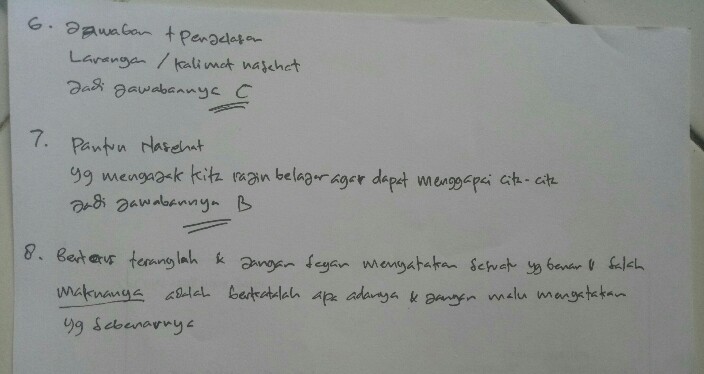 6. Jawaban + Penjelasan
Larangan / kalimat nasehat
Jadi jawabannya C
7. Pantun Nasehat
yg mengajak kita rajin belajar agar dapat menggapai cita-cita
Jadi jawabannya B
8. Berterus teranglah & jangan segan menyatakan sesuatu yg benar & salah
maknanya adalah berkatalah apa adanya & jangan malu mengatakan
yg sebenarnya